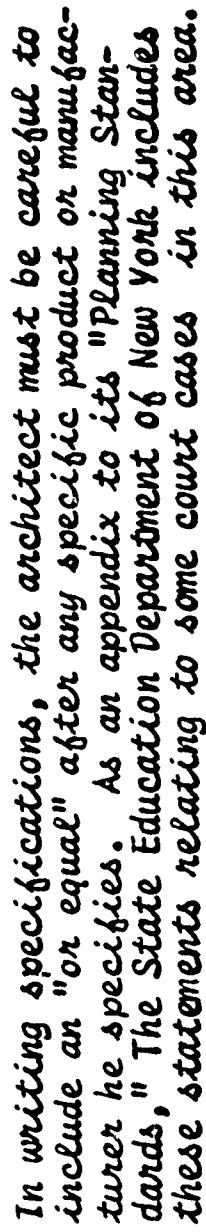 In writing specifications, the architect must be careful to
include an "or equal" after any specific product or manufac-
turer he specifies. As an appendix to its "Planning Stan-
dards," The State Education Department of New York includes
these statements relating to some court cases in this area.